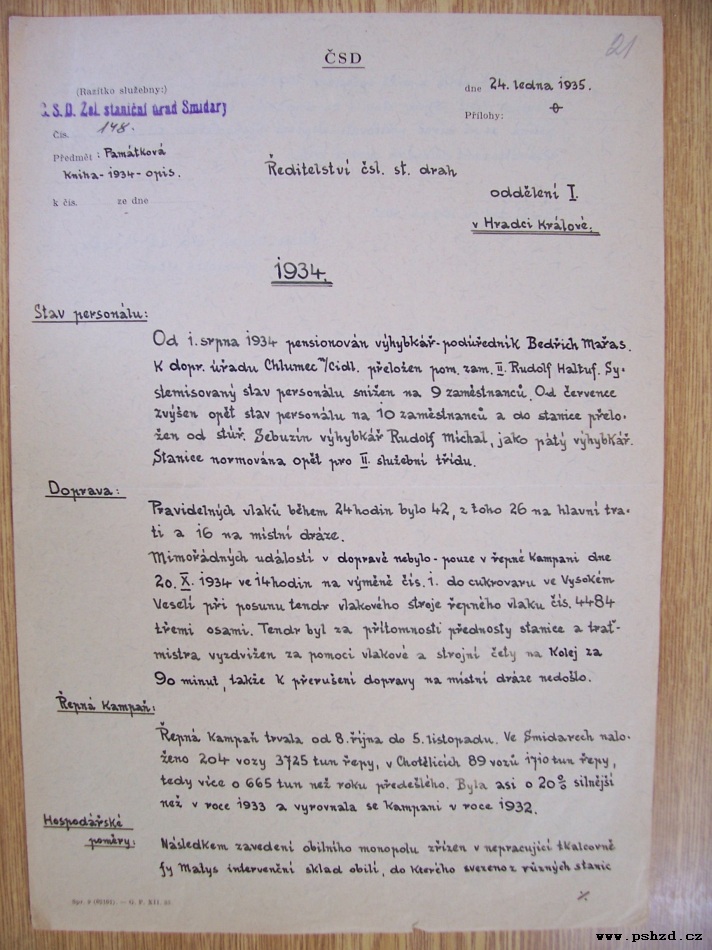 21
ČSD
(Razítko služebny:)
Č. S. D. Žel. staniční úřad Smidary
dne 24. ledna 1935.
Čís. 148.
Přílohy: 0
Předmět: Památková
Kniha-1934-opis.
k čís. ze dne
Ředitelství čsl. st. drah
oddělení I.
v Hradci Králové.
1934.
Stav personálu:
Od 1. srpna 1934 pensionován výhybkář-podúředník Bedřich Mařas.
K dopr. úřadu Chlumec n/Cidl. přeložen pom. zam. II. Rudolf Haltuf. Sy-
stemisovaný stav personálu snížen na 9 zaměstnanců. Od července
zvýšen opět stav personálu na 10 zaměstnanců a do stanice přelo-
žen od stúř. Sebuzín výhybkář Rudolf Michal, jako pátý výhybkář.
Stanice normována opět pro II. služební třídu.
Doprava:
Pravidelných vlaků během 24 hodin bylo 42, z toho 26 na hlavní tra-
ti a 16 na místní dráze.
Mimořádných událostí v dopravě nebylo-pouze v řepné kampani dne
20. X. 1934 ve 14 hodin na výměně čís. 1. do cukrovaru ve Vysokém
Veselí při posunu tendr vlakového stroje řepného vlaku čís. 4484
třemi osami. Tendr byl za přítomnosti přednosty stanice a trať-
mistra vyzdvižen za pomoci vlakové a strojní čety na kolej za
90 minut, takže k přerušení dopravy na místní dráze nedošlo.
Řepná kampaň:
Řepná kampaň trvala od 8. října do 5. listopadu. Ve Smidarech nalo-
ženo 204 vozy 3725 tun řepy, v Chotělicích 89 vozů 1710 tun řepy,
tedy více o 665 tun než roku předešlého. Byla asi o 20% silnější
než v roce 1933 a vyrovnala se kampani v roce 1932.
Hospodářské
poměry:
Následkem zavedení obilního monopolu zřízen v nepracující tkalcovně
fy Matys intervenční sklad obilí, do kterého svezeno z různých stanic
./.
www.pshzd.cz